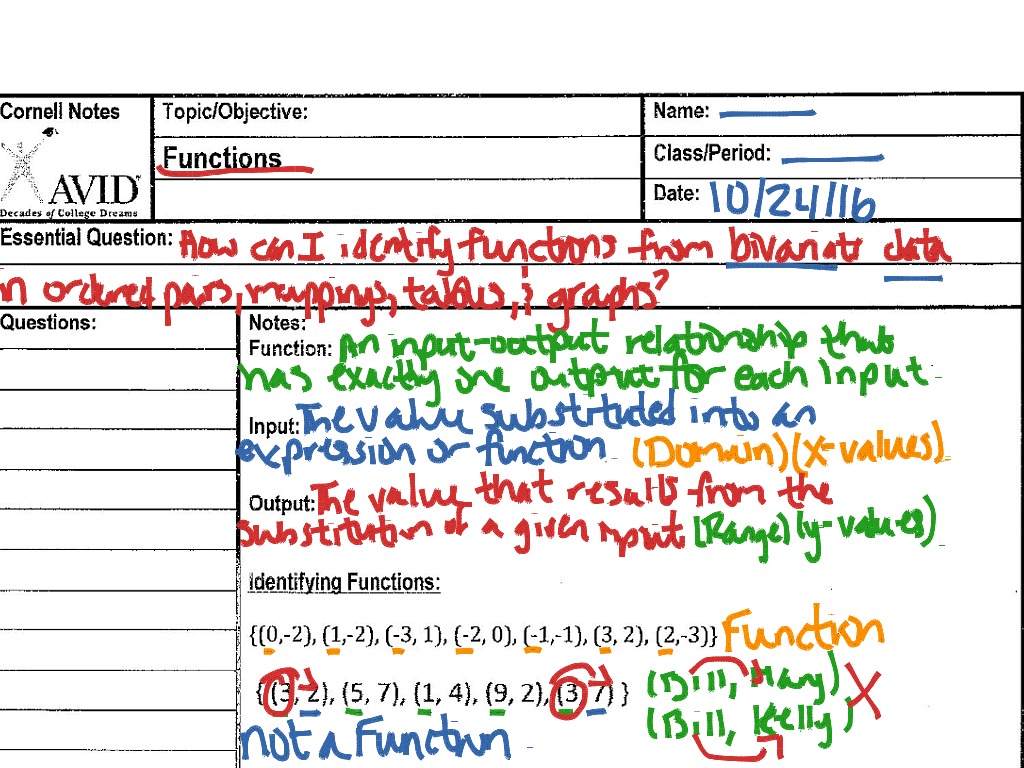 Cornell Notes
Topic/Objective:
Name:
Functions
Class/Period:
AVID
Decades of College Dreams
Date: 10/24/16
Essential Question: How can I identify functions from bivariate data
in ordered pairs, mappings, tables, & graphs?
Questions:
Notes:
Function: An input-output relationship that
has exactly one output for each input
Input: The value substituted into an
expression or function (Domain) (x-values)
Output: The value that results from the
substitution of a given input (Range) (y-values)
Identifying Functions:
{(0,-2), (1,-2), (-3, 1), (-2, 0), (-1,-1), (3, 2), (2,-3)} Function
{ (3, 2), (5, 7), (1, 4), (9, 2), (3, 7) } (Bill, Mary) X
(Bill, Kelly)
not a Function